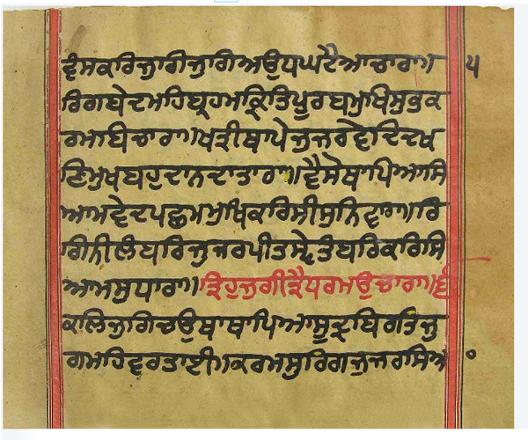 ਵੰਸਕਰਿਜੁਗਿਜੁਗਿਅਉਧਘਟੈਆਚਾਰਾ॥ ੫
ਰਿਗਬੇਦਮਹਿਬ੍ਰਹਮਕ੍ਰਿਤਿਪੂਰਬਮੁਖਿਸੁਭਕ
ਰਮਬਿਚਾਰਾ॥ਖਤ੍ਰੀਥਾਪੇਜੁਜਰਵੇਦਿਦਖ
ਣਿਮੁਖਬਹੁਦਾਨਦਾਤਾਰਾ॥ਵੈਸੋਥਾਪਿਆਸਿ
ਆਮਵੇਦਪਛਮਮੁਖਿਕਰਿਸੀਸੁਨਿਵਾਰਾ॥ਰਿ
ਗਿਨੀਲੰਬਰਿਜੁਜਰਪੀਤਸ੍ਵੇਤੰਬਰਿਕਰਿਸਿ
ਆਮਸੁਧਾਰਾ॥ਤ੍ਰਿਹੁਜੁਗੀਤ੍ਰੈਧਰਮਉਚਾਰਾ॥੬॥
ਕਲਿਜੁਗਿਚਉਥਾਥਾਪਿਆਸੂਦ੍ਰਬਿਰਤਿਜੁ
ਗਮਹਿਵਰਤਾਈ॥ਕਰਮਸੁਰਿਗਜੁਜਰਸਿਅ